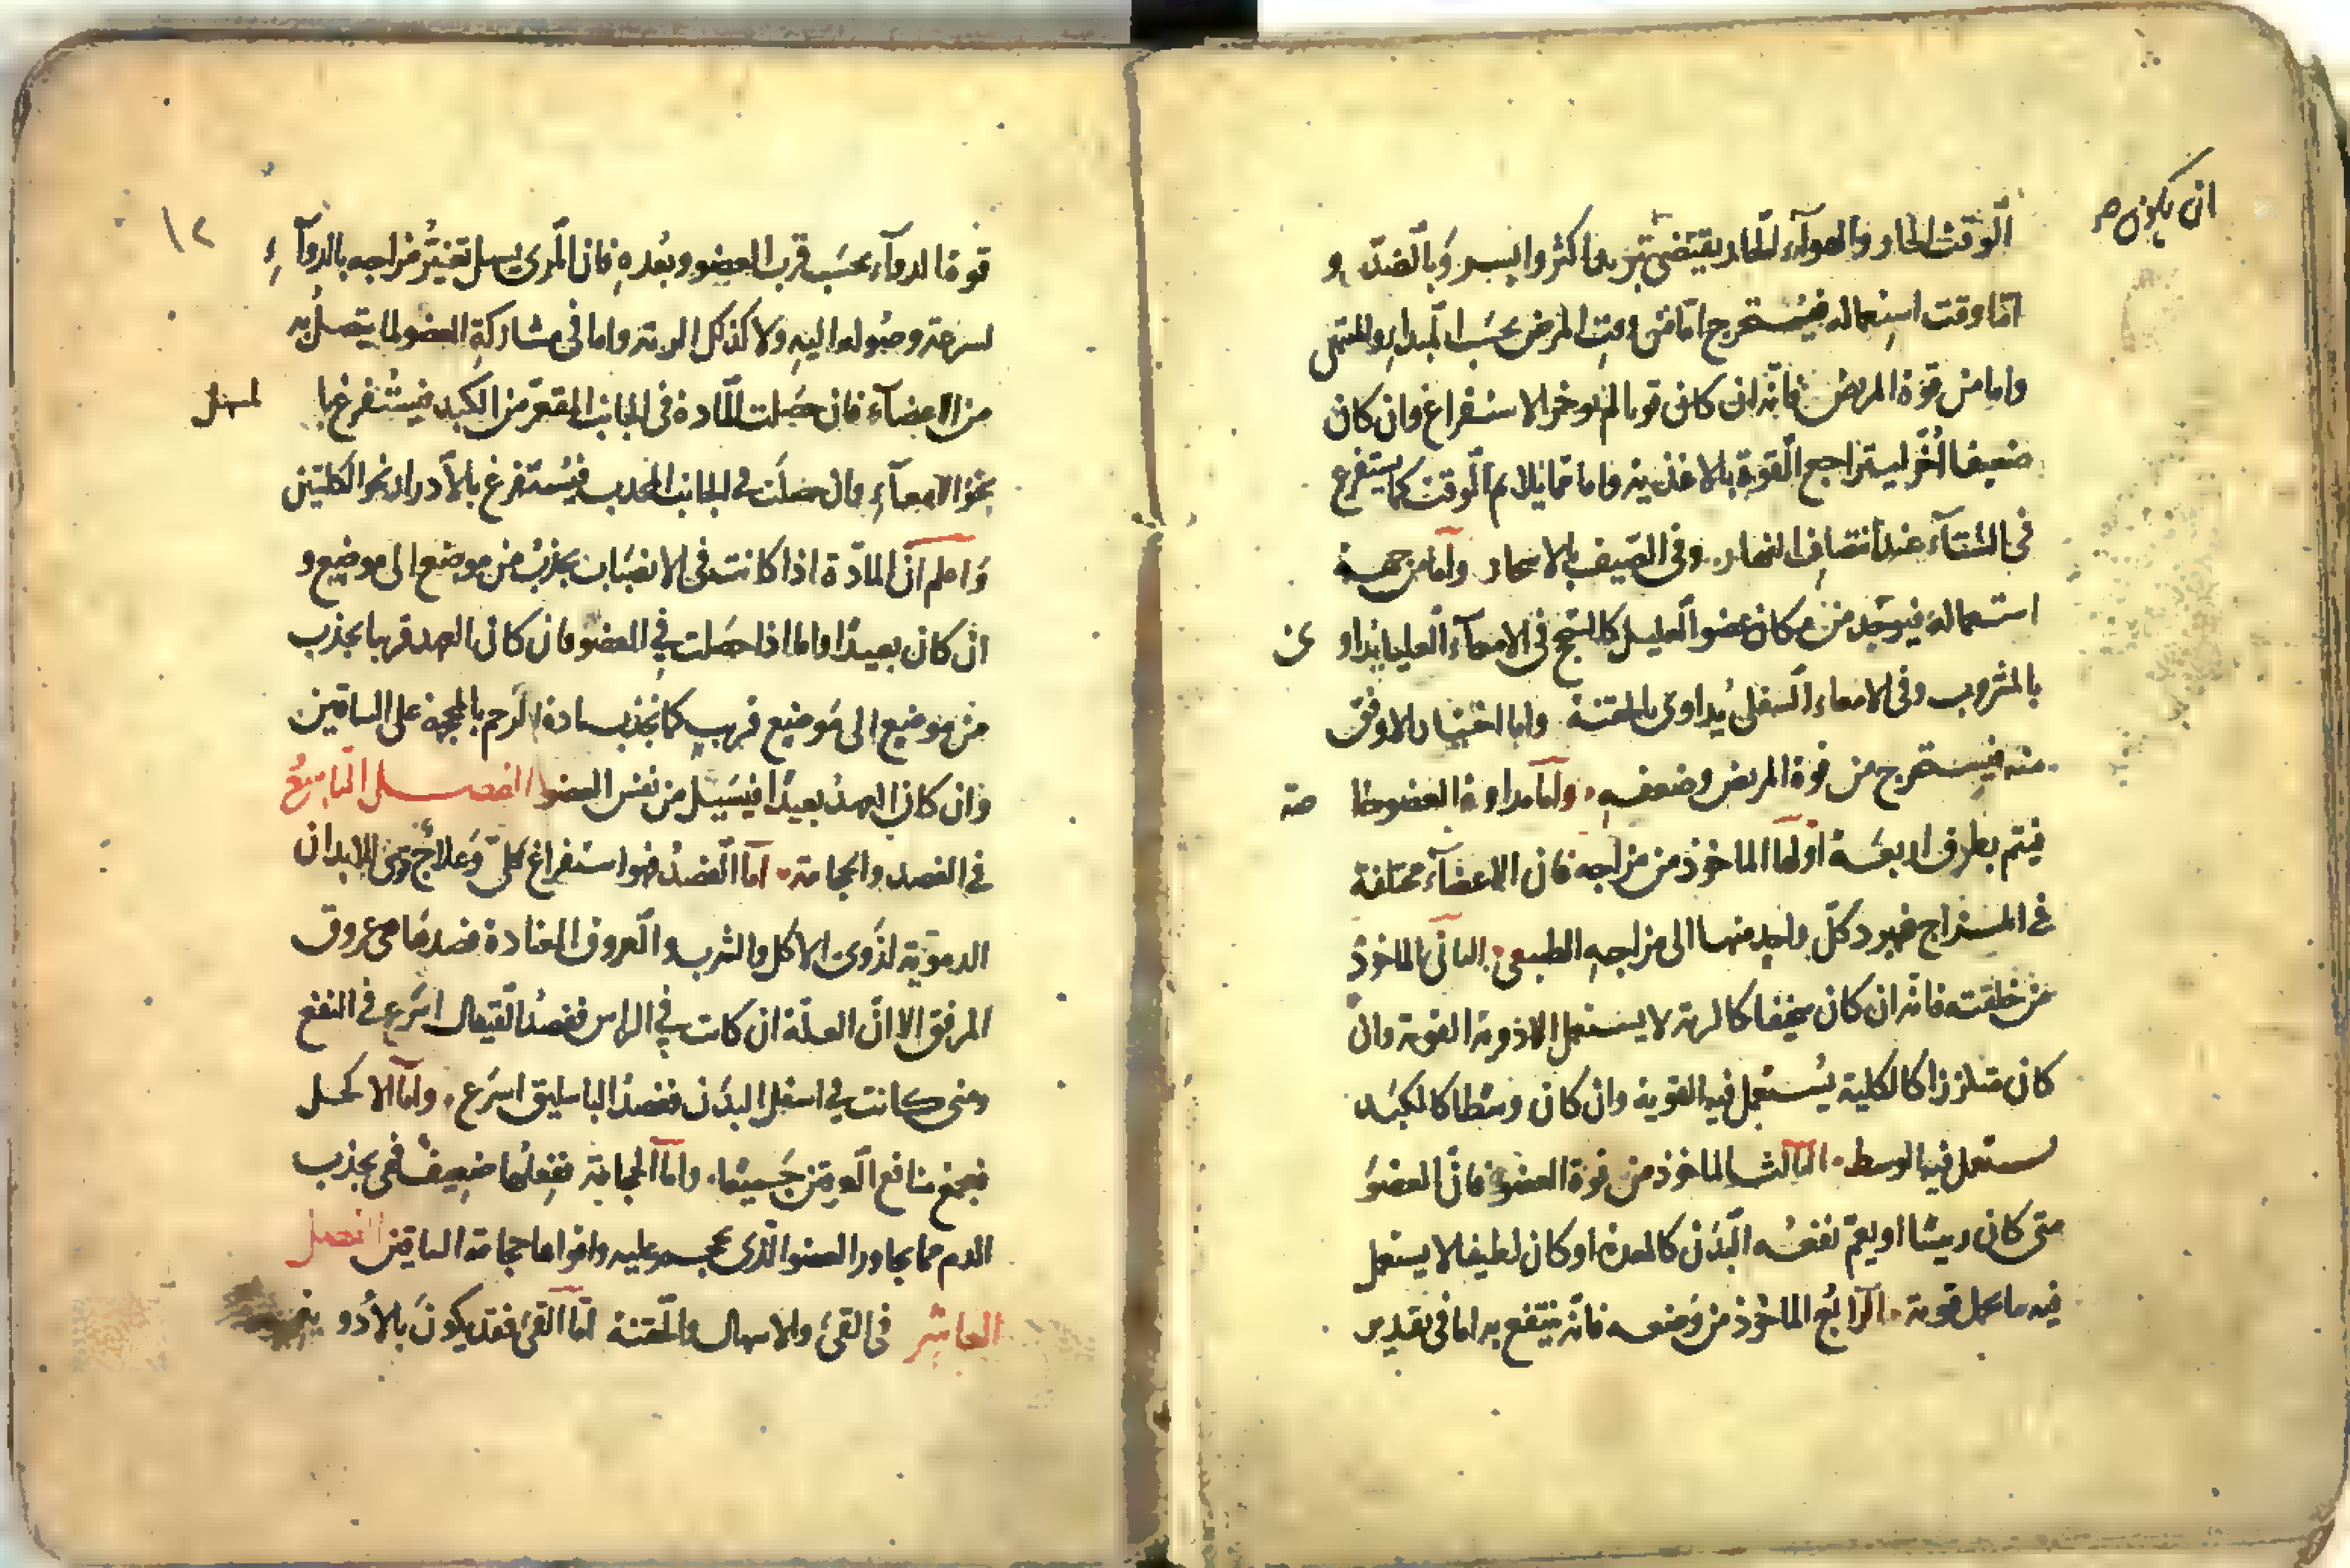 ان يكون صح
الوقت الحار والهواء الحار يقتضى تبريدا اكثر وايسر وبالضد و
اما وقت استعماله فيستخرج اما من وقت المرض بحسب المبدا والمنتهى
واما من قوة المريض فانه ان كان قويا لم يوخر الاستفراغ وان كان
ضعيفا اخر ليتراجع القوة بالاغذية واما مما يلايم الوقت كما يستفرغ
فى الشتآء عند انتصاف النهار وفى الصيف بالاسحار واما من جهة
استعماله فيوجد من مكان عضو العليل كالسحج فى الامعآء العليا يداوى
بالمشروب وفى الامعاء السفلى يداوى بالحقنة واما اختيار الاوفق
منه فيستخرج من قوة المريض وضعفه واما مداواة العضو خاصة
فيتم بطرق اربعة اولها الماخوذ من مزاجه فان الاعضآء مختلفة
فى المزاج فيرد كل واحد منها الى مزاجه الطبيعى الثانى الماخوذ
من خلقته فانه ان كان سخيفا كالرية لا يستعمل الادوية القوية وان
كان متلززا كالكلية يستعمل فيه القوية وان كان وسطا كالكبد
يستعمل فيه الوسط الثالث الماخوذ من قوة العضو فان العضو
متى كان رييسا او يعم نفعه البدن كالمعدة او كان لطيفا لا يستعمل
فيه ما يحل قوته الرابع الماخوذ من وضعه فانه ينتفع به اما فى تقدير
١٢
قوة الدوآء بحسب قرب العضو وبعده فان المرى يسهل تغير مزاجه بالدوآء
لسرعة وصوله اليه ولا كذلك الرية واما فى مشاركة العضو لما يتصل به
من الاعضآء فان حصلت المادة فى الجانب المقعر من الكبد فيستفرغ بالمسهل
نحو الامعآء وان حصلت فى الجانب المحدب فيستفرغ بالادرار نحو الكليتين
واعلم ان المادة اذا كانت فى الانصباب بجذب من موضع الى موضع و
ان كان بعيدا واما اذا حصلت فى العضو فان كان العهد قريبا بجذب
من موضع الى موضع قريب كما تجذب مادة الرحم بالمحجمة على الساقين
وان كان العهد بعيدا فيسيل من نفس العضو الفصل التاسع
فى الفصد والحجامة اما الفصد فهو استفراغ كلى وعلاج قوى للابدان
الدموية لذوى الاكل والشرب والعروق المعتادة فصدها هى عروق
المرفق الا ان العلة ان كانت فى الراس ففصد القيفال اسرع فى النفع
ومتى كانت فى اسفل البدن ففصد الباسليق اسرع واما الاكحل
فيجمع منافع العرقين جميعا واما الحجامة ففعلها ضعيف فهى بجذب
الدم مما يجاور العضو الذى يحجم عليه واقواها حجامة الساقين الفصل
العاشر فى القئ والاسهال والحقنة اما القئ فقد يكون بالادوية